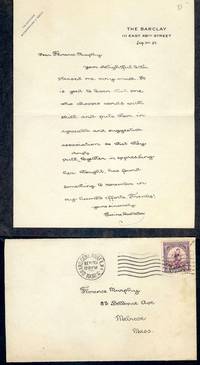 THE BARCLAY
111 EAST 48TH STREET
Dear Florence Murphy
Your delightful letter
pleased me very much. It
is good to learn that one
who chooses words with
skill and puts them in
agreeable and suggestive
association so that they
pull together in expressing
her thought, has found
something to remember in
my efforts. Thanks!
Yours sincerely
Florence Murphy
Melrose
Mass.